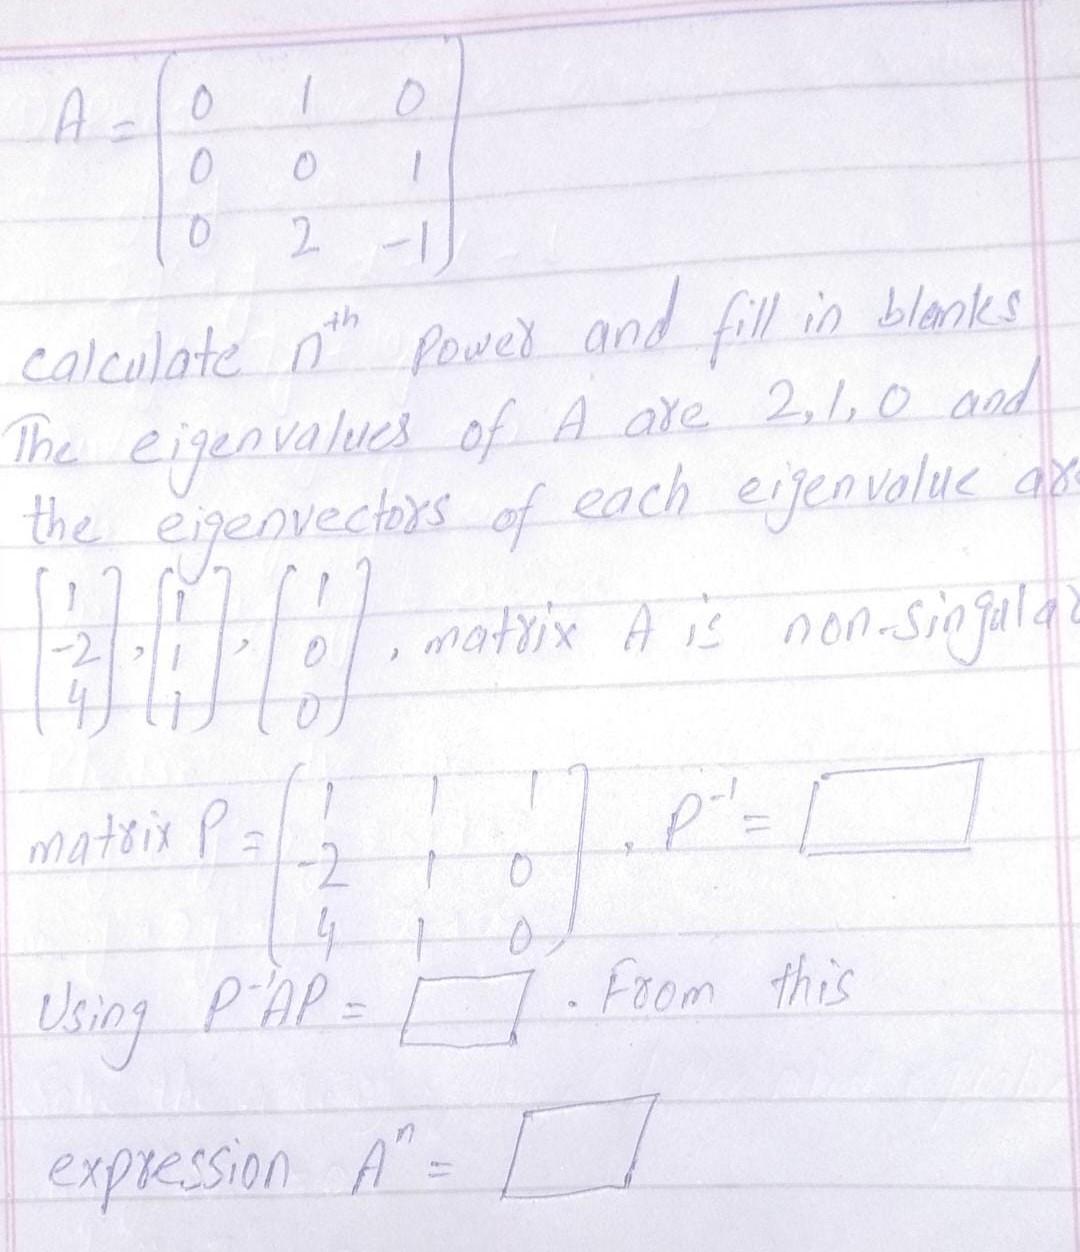 A = [0 1 0
0 0 1
0 2 -1]
calculate nth power and fill in blanks
The eigenvalues of A are 2, 1, 0 and
the eigenvectors of each eigenvalue are
[1 -2 4], [1 1 1], [1 0 0], matrix A is non-singular
matrix P = [1 1 1
-2 1 0
4 1 0]. P⁻¹ =
Using P⁻¹AP = . From this
expression Aⁿ =